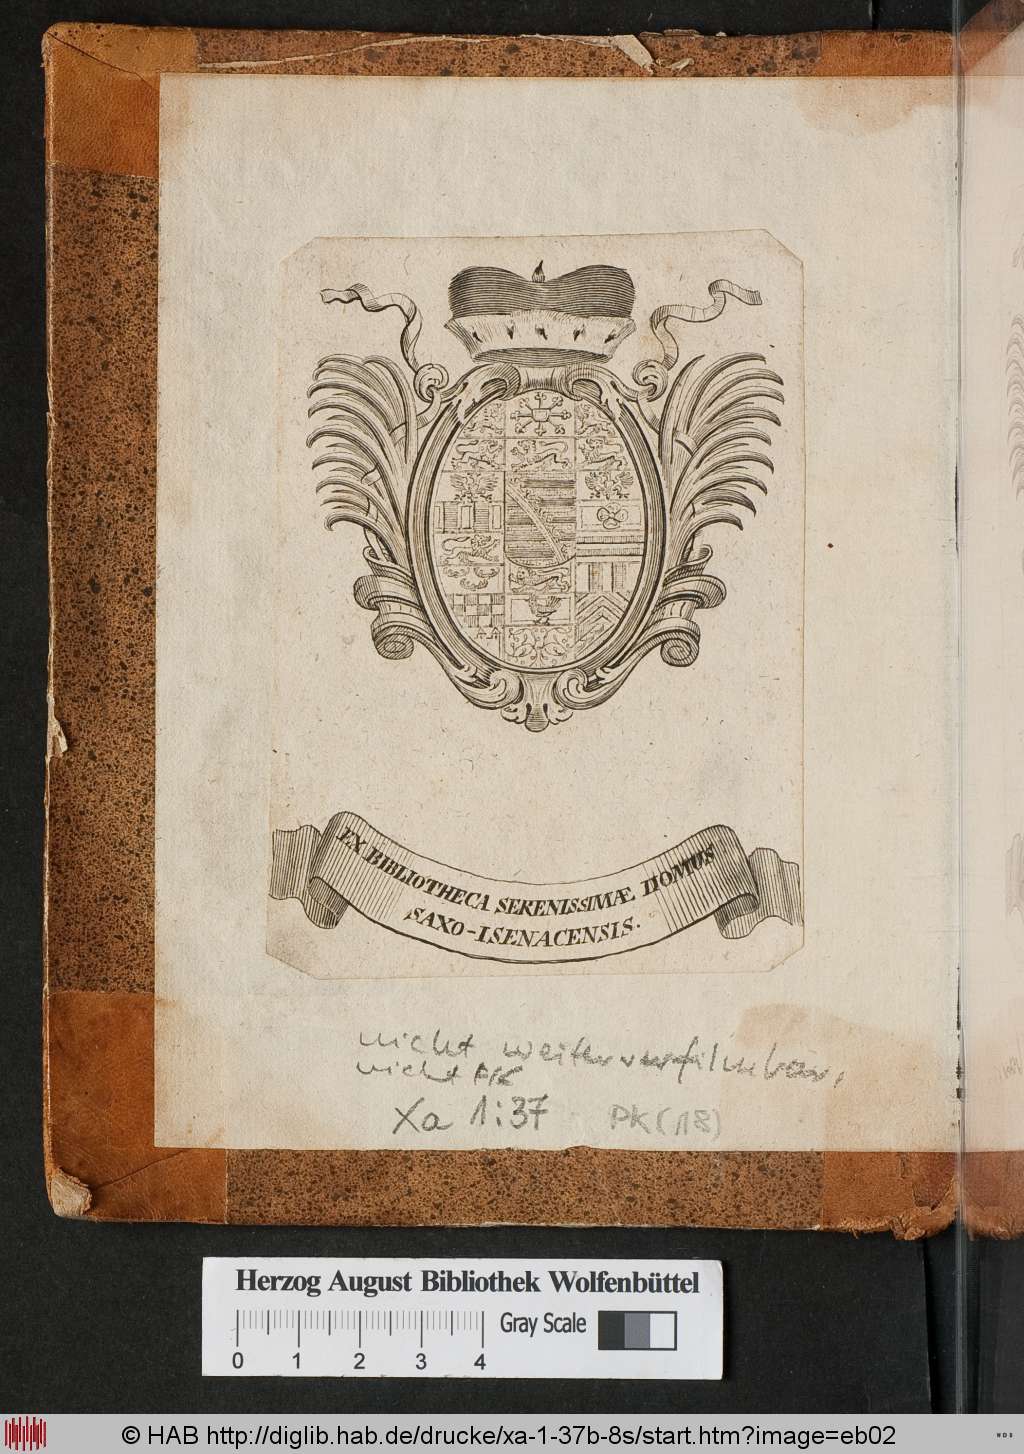 EX BIBLIOTHECA SERENISSIMÆ DOMUS
SAXO-ISENACENSIS.
nicht weiter verfilmbar,
nicht PK
Xa 1:37 PK(18)
Herzog August Bibliothek Wolfenbüttel
Gray Scale
0 1 2 3 4
© HAB http://diglib.hab.de/drucke/xa-1-37b-8s/start.htm?image=eb02
WDB